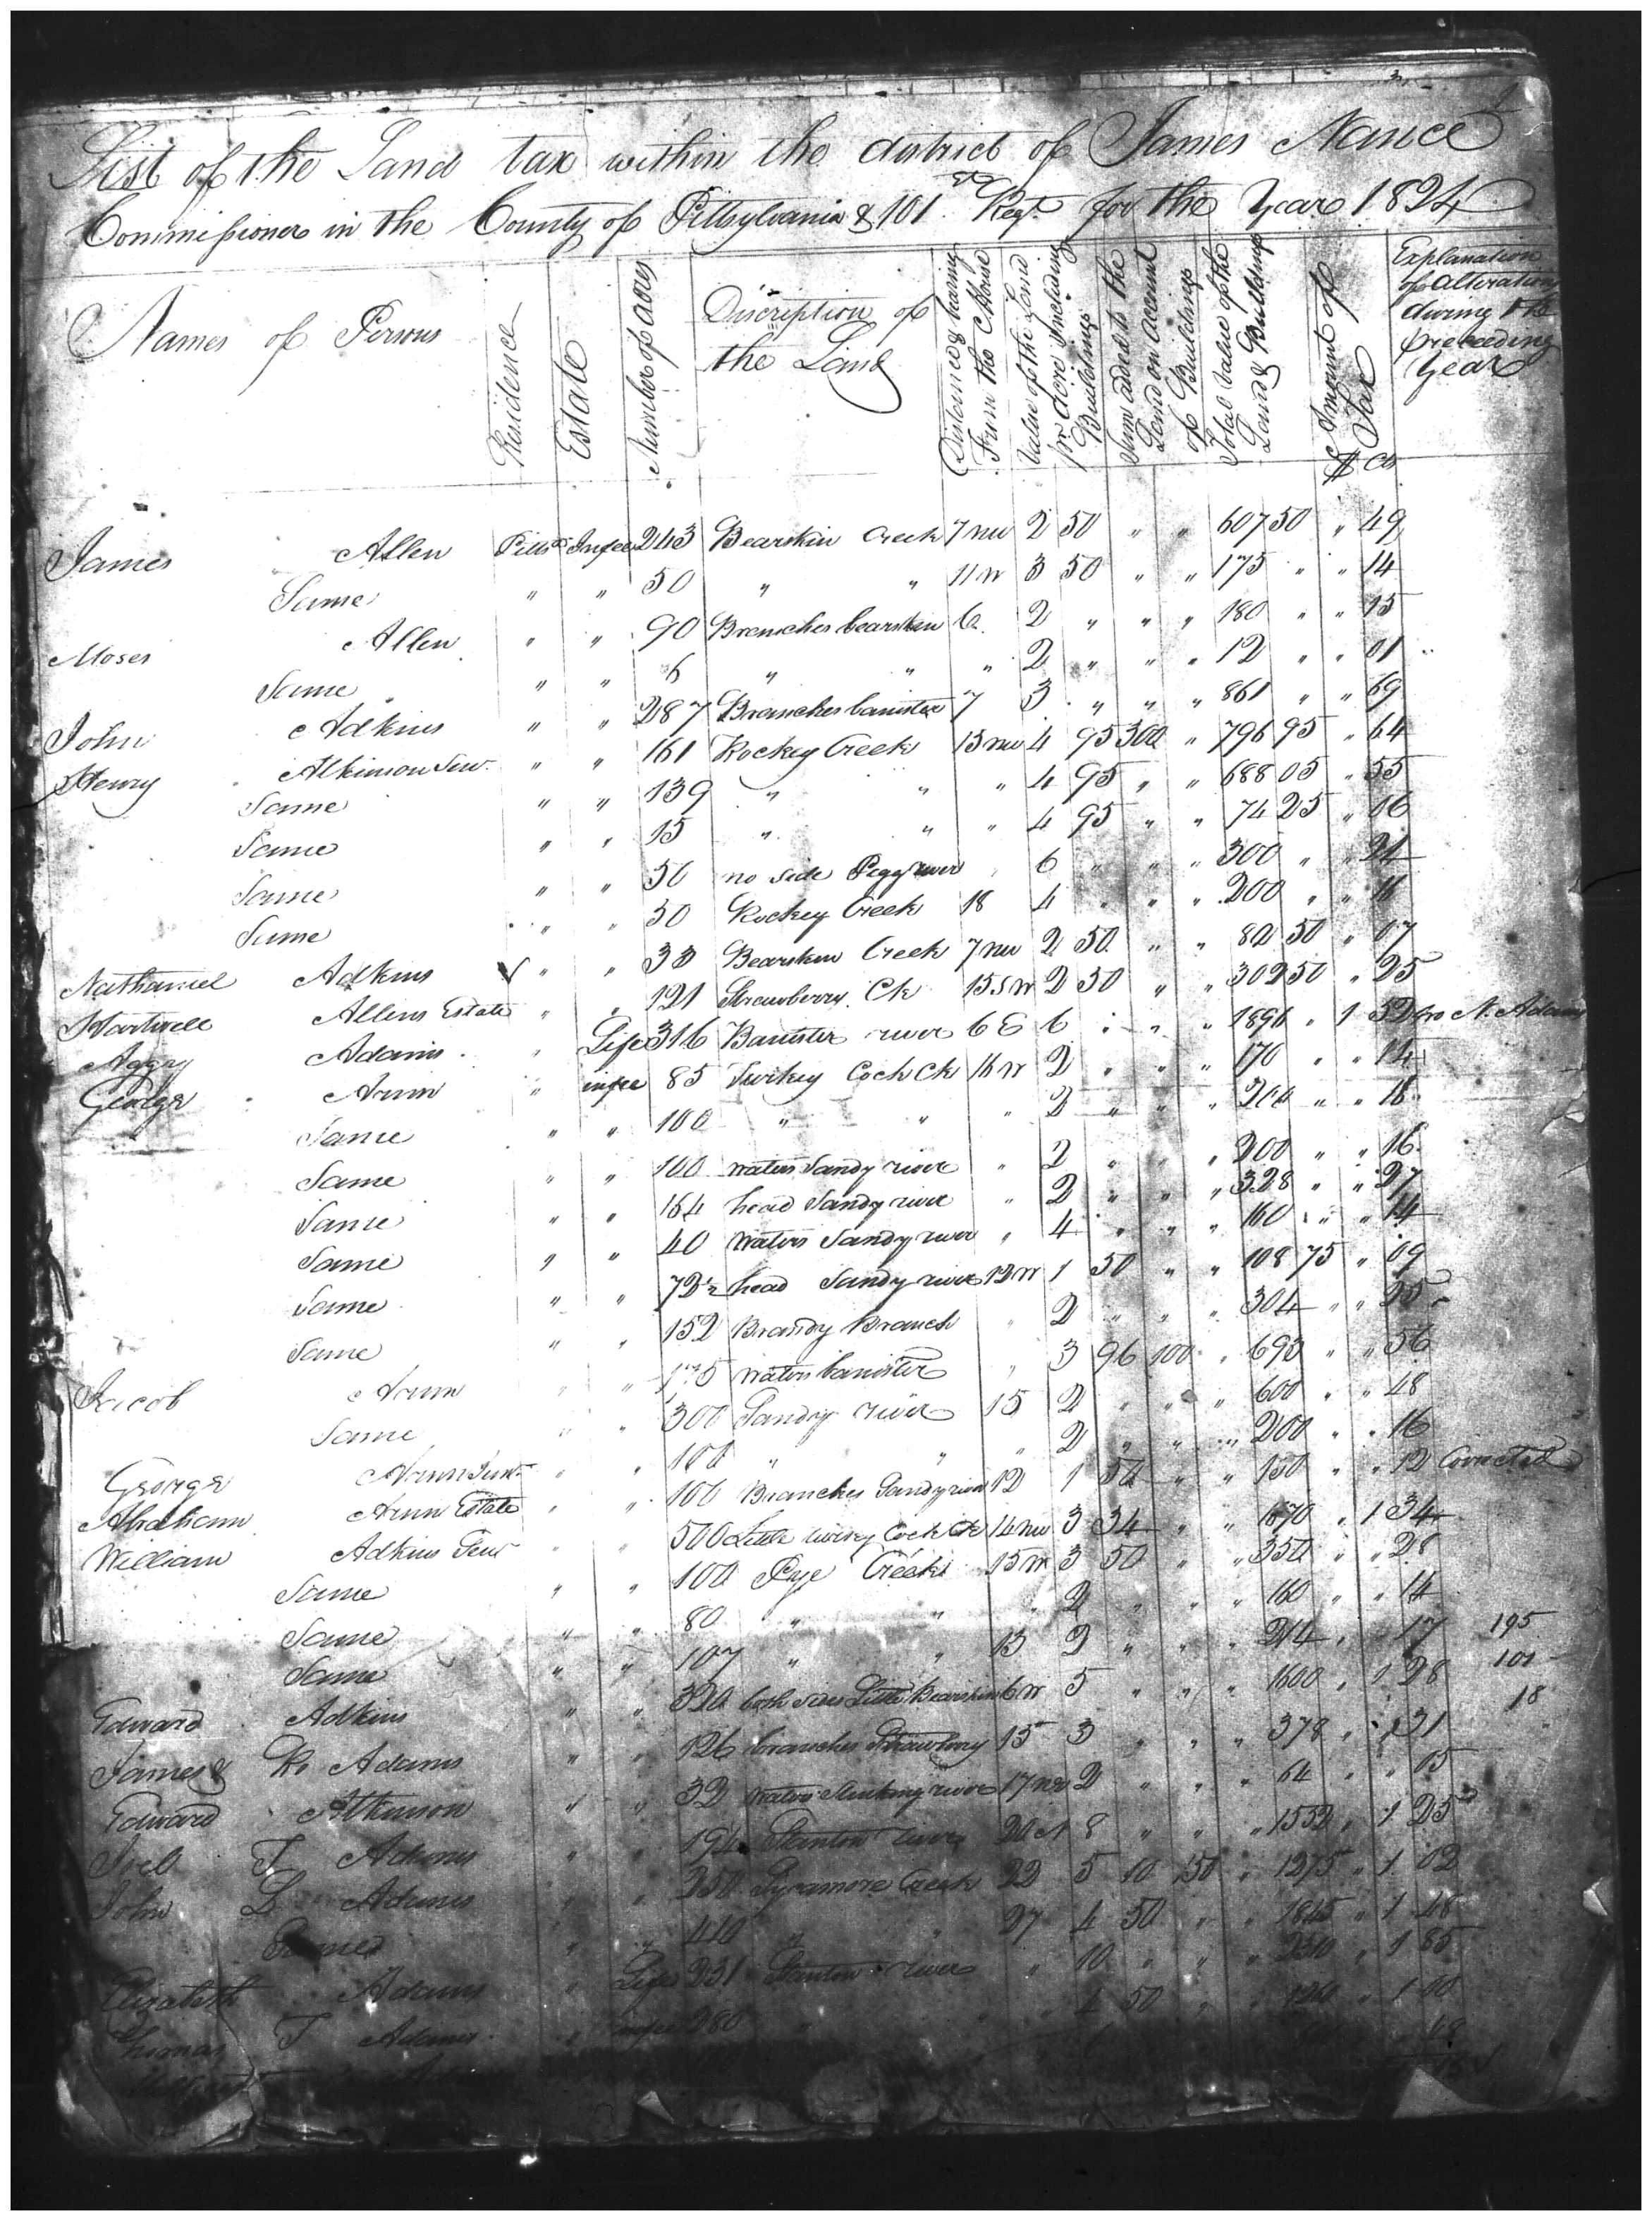 List of the Land tax within the district of James Nance
Commissioner in the County of Pittsylvania & 101 Regt for the Year 1824
Names of Persons Residence Estate Number of acres Discription of the Land Distance & bearing From the CHouse Value of the Land pr Acre Including Buildings Sum added to the Land on account of Buildings Total Value of the Land & Buildings Amount of Tax $ Cts Explanation of alteration during the preceeding Year
James Allen Pitts Infee 243 Bearskin Creek 7 nw 2 50 " " 607 50 " 49
Same " " 50 " " 11 W 3 50 " " 175 " " 14
Moses Allen " " 90 Branches bearskin 6 2 " " " 180 " " 15
Same " " 6 " " " 2 " " " 12 " " 01
John Adkins " " 287 Branches banister 7 3 " " " 861 " " 69
Henry Atkinson Senr " " 161 Rockey Creek 13 nw 4 95 300 " 796 95 " 64
Same " " 139 " " " 4 95 " " 688 05 " 55
Same " " 15 " " " 4 95 " " 74 25 " 06
Same " " 50 no side Pigg river 6 " " " 300 " " 24
Same " " 50 Rockey Creek 18 4 " " " 200 " " 16
Nathaniel Adkins " " 33 Bearskin Creek 7 nw 2 50 " " 82 50 " 07
Hartwell Allens Estate " " 121 Strawberry Ck 15 SW 2 50 " " 302 50 " 25
Aggy Adams " Life 316 Banister river 6 E 6 " " " 1896 " 1 52 N. Adams
George Arun " infee 85 Turkey Cock Ck 16 W 2 " " " 170 " " 14
Same " " 100 " " " 2 " " " 200 " " 18
Same " " 100 waters Sandy river " 2 " " " 200 " " 16
Same " " 164 head Sandy river " 2 " " " 328 " " 27
Same " " 40 waters Sandy river " 4 " " " 160 " " 14
Same " " 72½ head Sandy river 12 W 1 50 " " 108 75 " 09
Same " " 152 Brandy Branch " 2 " " " 304 " " 25
Jacob Arun " " 175 waters banister " 3 96 100 " 693 " " 56
Same " " 300 Sandy river 15 2 " " " 600 " " 48
George Arun Junr " " 100 " " " 2 " " " 200 " " 16
Abraham Arun Estate " " 100 Branches Sandy river 12 1 50 " " 150 " " 12 Corrected
William Adkins Senr " " 500 Little turkey Cock Ck 14 nw 3 34 " " 1670 " 1 34
Same " " 100 Pye Creek 15 W 3 50 " " 350 " " 28
Same " " 80 " " " 2 " " " 160 " " 14
Same " " 107 " " 13 2 " " " 214 " 17 195
Edward Adkins " " 320 both sides Little Bearskin 6 W 5 " " " 1600 " 1 28 101
James & Ro Adams " " 126 branches Strawberry 15 3 " " " 378 " " 31 18
Edward Atkinson " " 32 waters Stinking river 17 ne 2 " " " 64 " " 05
Joel T Adams " " 194 Stanton river 20 N 8 " " " 1552 " 1 25
John L Adams " " 250 Sycamore Creek 22 5 10 50 " 1275 " 1 02
Same " " 410 " " 27 4 50 " " 1845 " 1 48
Elizabeth Adams " Life 231 Stanton river " 10 " " " 2310 " 1 85
Thomas T Adams " infee 280 " " " 4 50 " " 1260 " 1 00